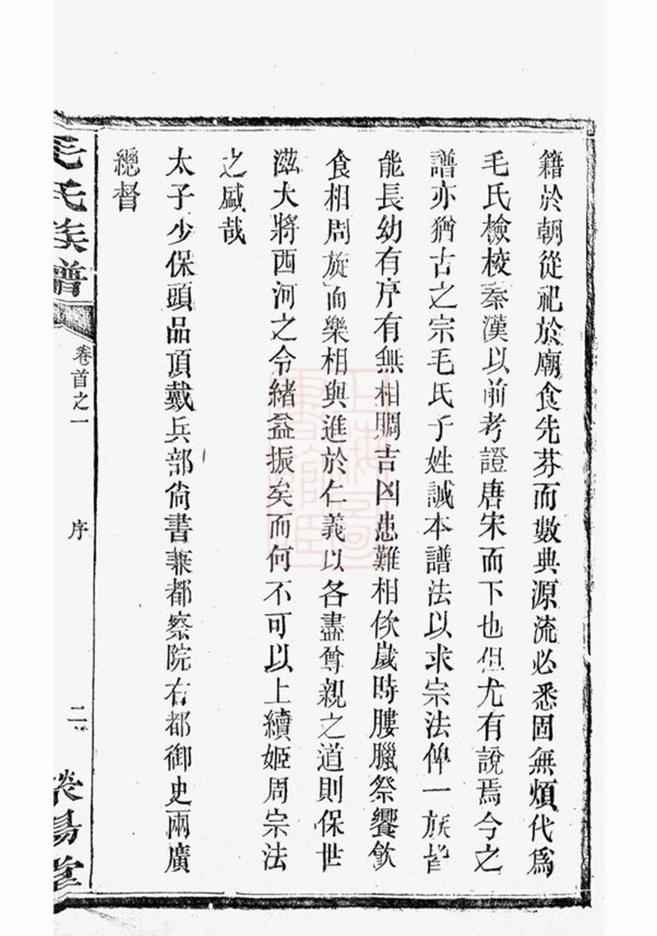 籍於朝從祀於廟食先芬而數典源流必悉固無煩代爲
毛氏檢校秦漢以前考證唐宋而下也但尤有說焉今之
譜亦猶古之宗毛氏子姓誠本譜法以求宗法俾一族皆
能長幼有序有無相賙吉凶患難相佽歲時膢臘祭饗飲
食相周旋而樂相與進於仁義以各盡尊親之道則保世
滋大將西河之令緒益振矣而何不可以上續姬周宗法
之盛哉
太子少保頭品頂戴兵部尙書兼都察院右都御史兩廣
總督
毛氏族譜
卷首之一
序
二
滎陽堂